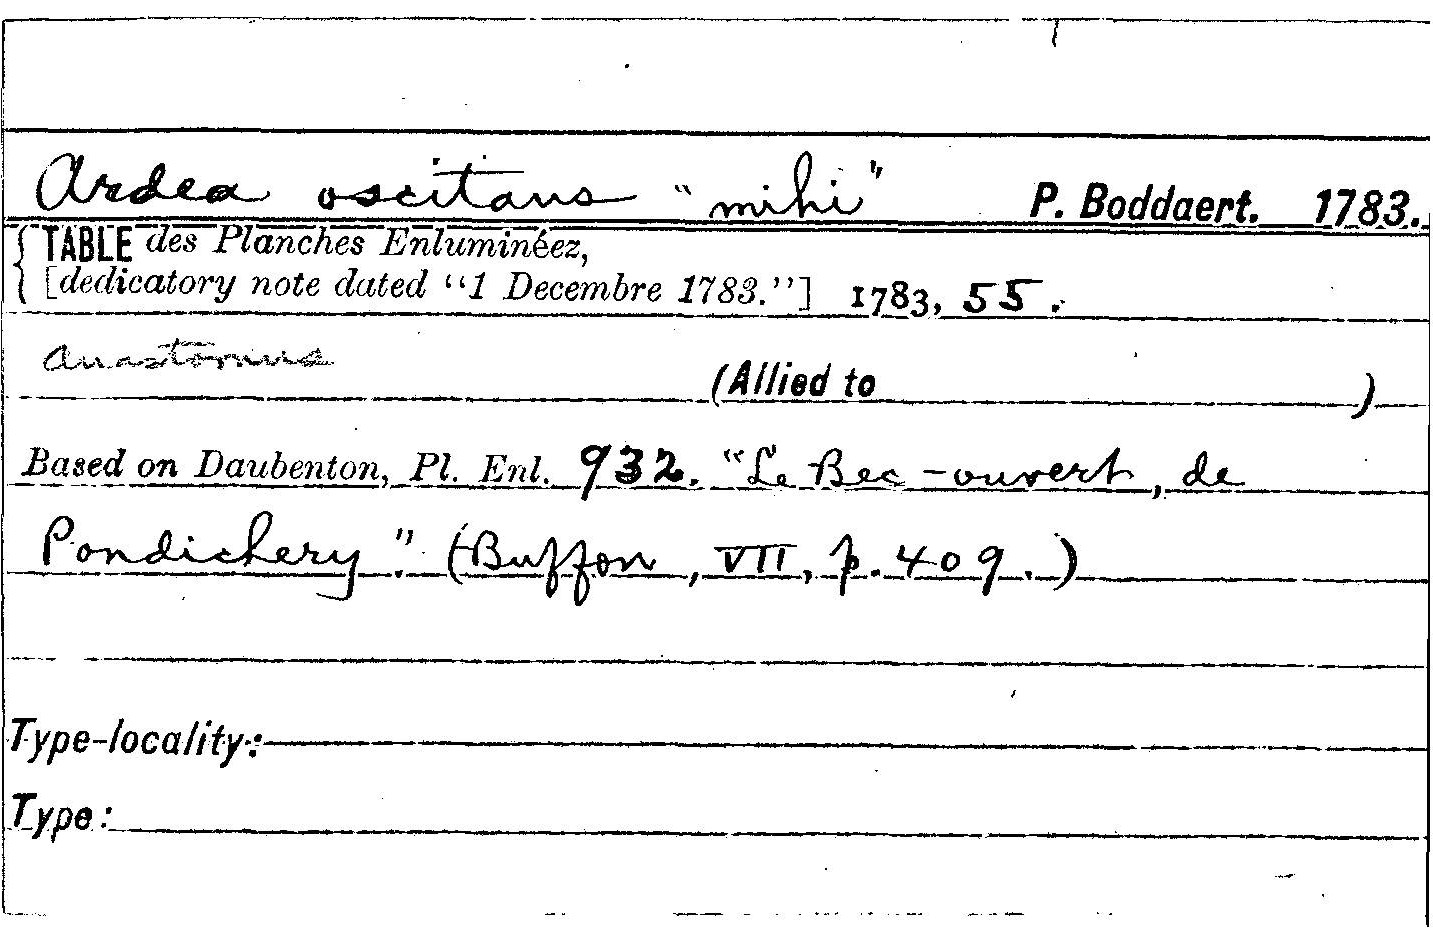 Ardea oscitans "mihi" P. Boddaert. 1783.
TABLE des Planches Enluminéez,
[dedicatory note dated "1 Decembre 1783."] 1783, 55.
Anastomus
(Allied to )
Based on Daubenton, Pl. Enl. 932. "Le Bec-ouvert, de
Pondichery". (Buffon, VII, p. 409.)
Type-locality:
Type: